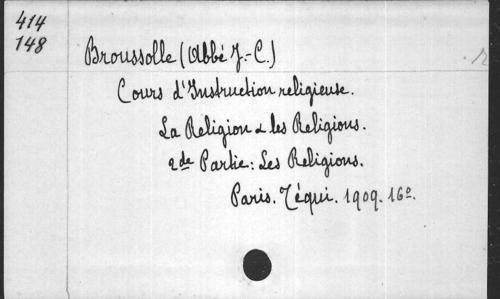 414
148
Broussolle (Abbé J.-C.)
Cours d'Instruction religieuse.
La Religion & les Religions.
2de Partie: Les Religions.
Paris. Téqui. 1909. 16o.